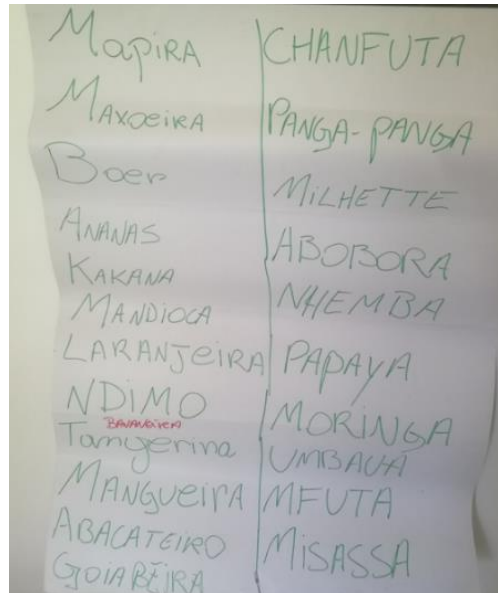 MapiRA
MAXOeiRA
Boer
ANANAS
KAKANA
MANDiOCA
LARANJeiRA
NDiMO
BANANeiRA
Tangerina
MANGUeiRA
ABACATEiRO
GOiABEiRA
CHANFUTA
PANGA-PANGA
MiLHETTE
ABOBORA
NHEMBA
PAPAYA
MORiNGA
UMBAUÁ
MFUTA
MiSASSA